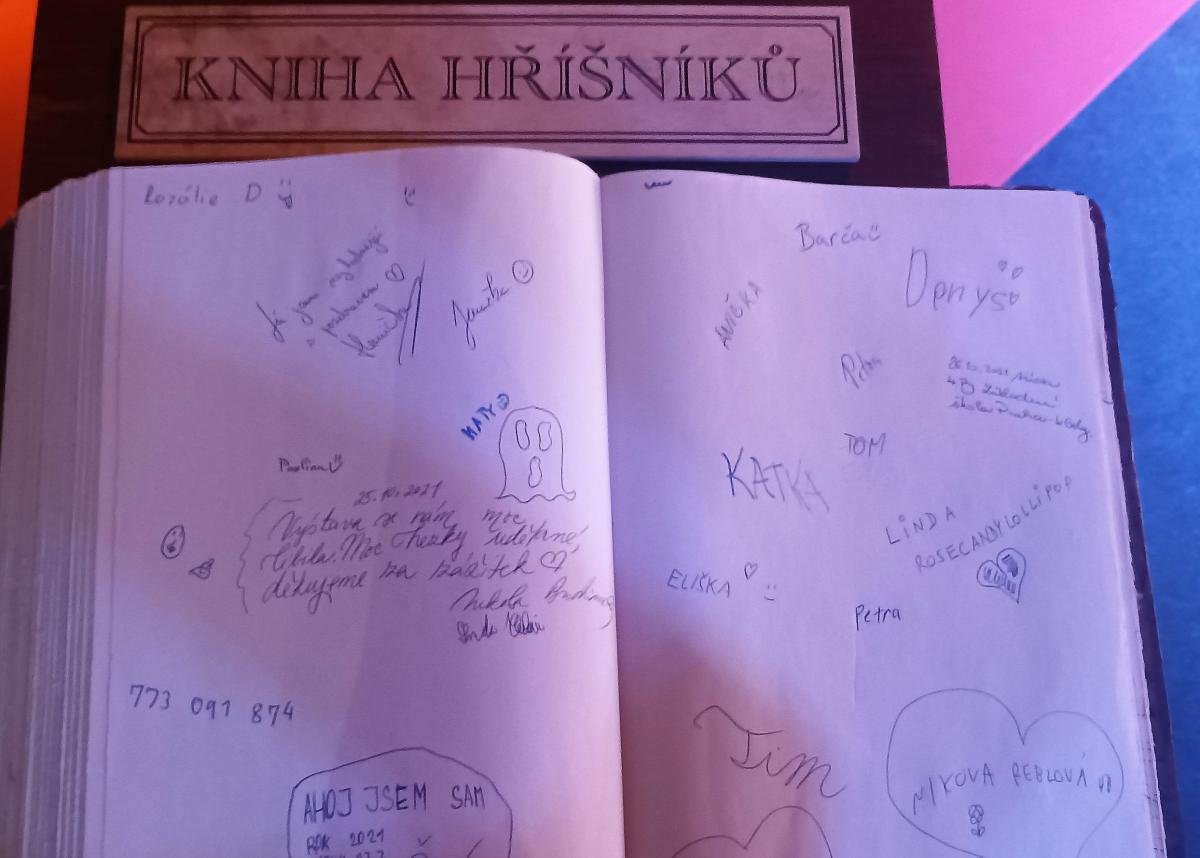 KNIHA HŘÍŠNÍKŮ
Rozálie D
Já jsem
a
Janička
KATY
Pavlína
25.10.2021
Výstava se nám moc
líbila. Moc hezky udělané,
děkujeme za zážitek
Nikola
773 091 874
AHOJ JSEM SAM
ROK 2021
Barča
Denys
ANIČKA
Petra
26.10.2021
4.B Základní
škola
TOM
KATKA
LINDA
ROSECANDYLOLLIPOP
ELIŠKA
Petra
Tim